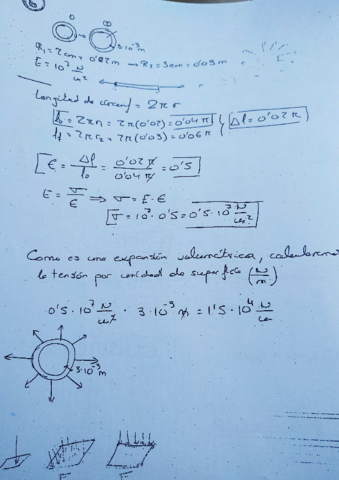 6
0 1
3·10⁻³m
R₁ = 2cm = 0'02 m → R₂ = 3cm = 0'03m
E = 10⁷ N/m²
Longitud de circunf = 2πr
l₀ = 2πr₁ = 2π(0'02) = 0'04π
l₁ = 2πr₂ = 2π(0'03) = 0'06π
Δl = 0'02π
ε = Δl/l₀ = 0'02π/0'04π = 0'5
E = σ/ε ⇒ σ = E·ε
σ = 10⁷·0'5 = 0'5·10⁷ N/m²
Como es una expansión volumétrica, calcularemos
la tensión por unidad de superficie (N/m)
0'5·10⁷ N/m² · 3·10⁻³ m = 1'5·10⁴ N/m
3·10⁻³m
F F